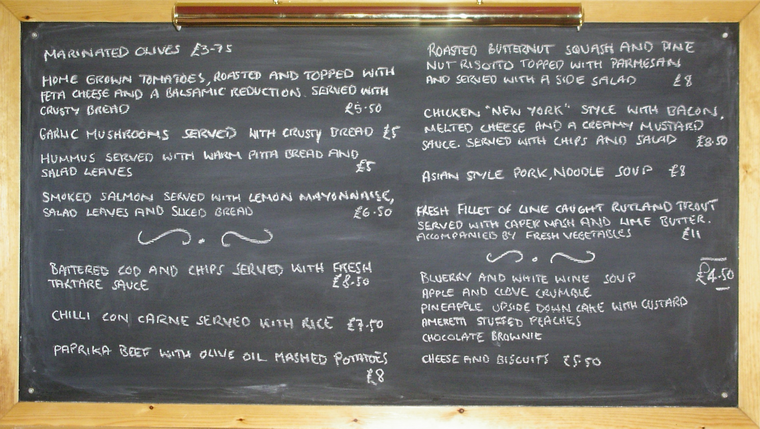 MARINATED OLIVES £3-75
HOME GROWN TOMATOES, ROASTED AND TOPPED WITH
FETA CHEESE AND A BALSAMIC REDUCTION. SERVED WITH
CRUSTY BREAD £5.50
GARLIC MUSHROOMS SERVED WITH CRUSTY BREAD £5
HUMMUS SERVED WITH WARM PITTA BREAD AND
SALAD LEAVES £5
SMOKED SALMON SERVED WITH LEMON MAYONNAISE,
SALAD LEAVES AND SLICED BREAD £6.50
BATTERED COD AND CHIPS SERVED WITH FRESH
TARTARE SAUCE £8.50
CHILLI CON CARNE SERVED WITH RICE £7.50
PAPRIKA BEEF WITH OLIVE OIL MASHED POTATOES
£8
ROASTED BUTTERNUT SQUASH AND PINE
NUT RISOTTO TOPPED WITH PARMESAN
AND SERVED WITH A SIDE SALAD £8
CHICKEN "NEW YORK" STYLE WITH BACON,
MELTED CHEESE AND A CREAMY MUSTARD
SAUCE. SERVED WITH CHIPS AND SALAD £8.50
ASIAN STYLE PORK, NOODLE SOUP £8
FRESH FILLET OF LINE CAUGHT RUTLAND TROUT
SERVED WITH CAPER MASH AND LIME BUTTER.
ACCOMPANIED BY FRESH VEGETABLES £11
BLUERRY AND WHITE WINE SOUP £4.50
APPLE AND CLOVE CRUMBLE
PINEAPPLE UPSIDE DOWN CAKE WITH CUSTARD
AMERETTI STUFFED PEACHES
CHOCOLATE BROWNIE
CHEESE AND BISCUITS £5.50